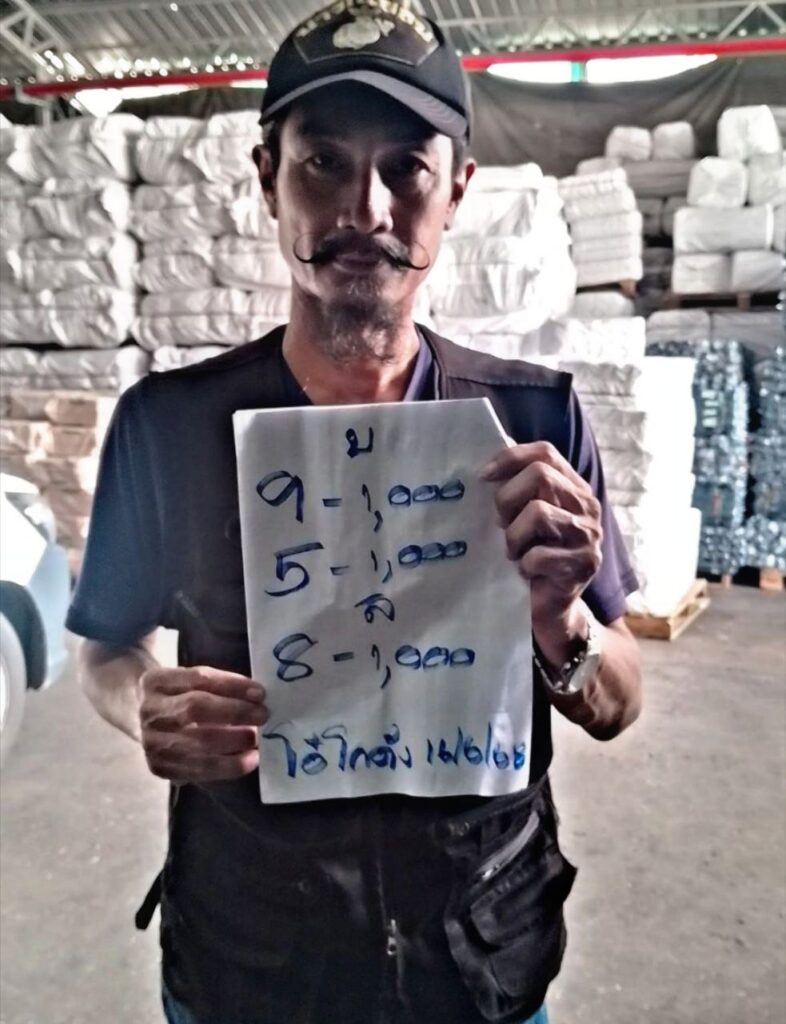 บ
9 - 1,000
5 - 1,000
ล
8 - 1,000
โอ๋โกดัง 16/6/68